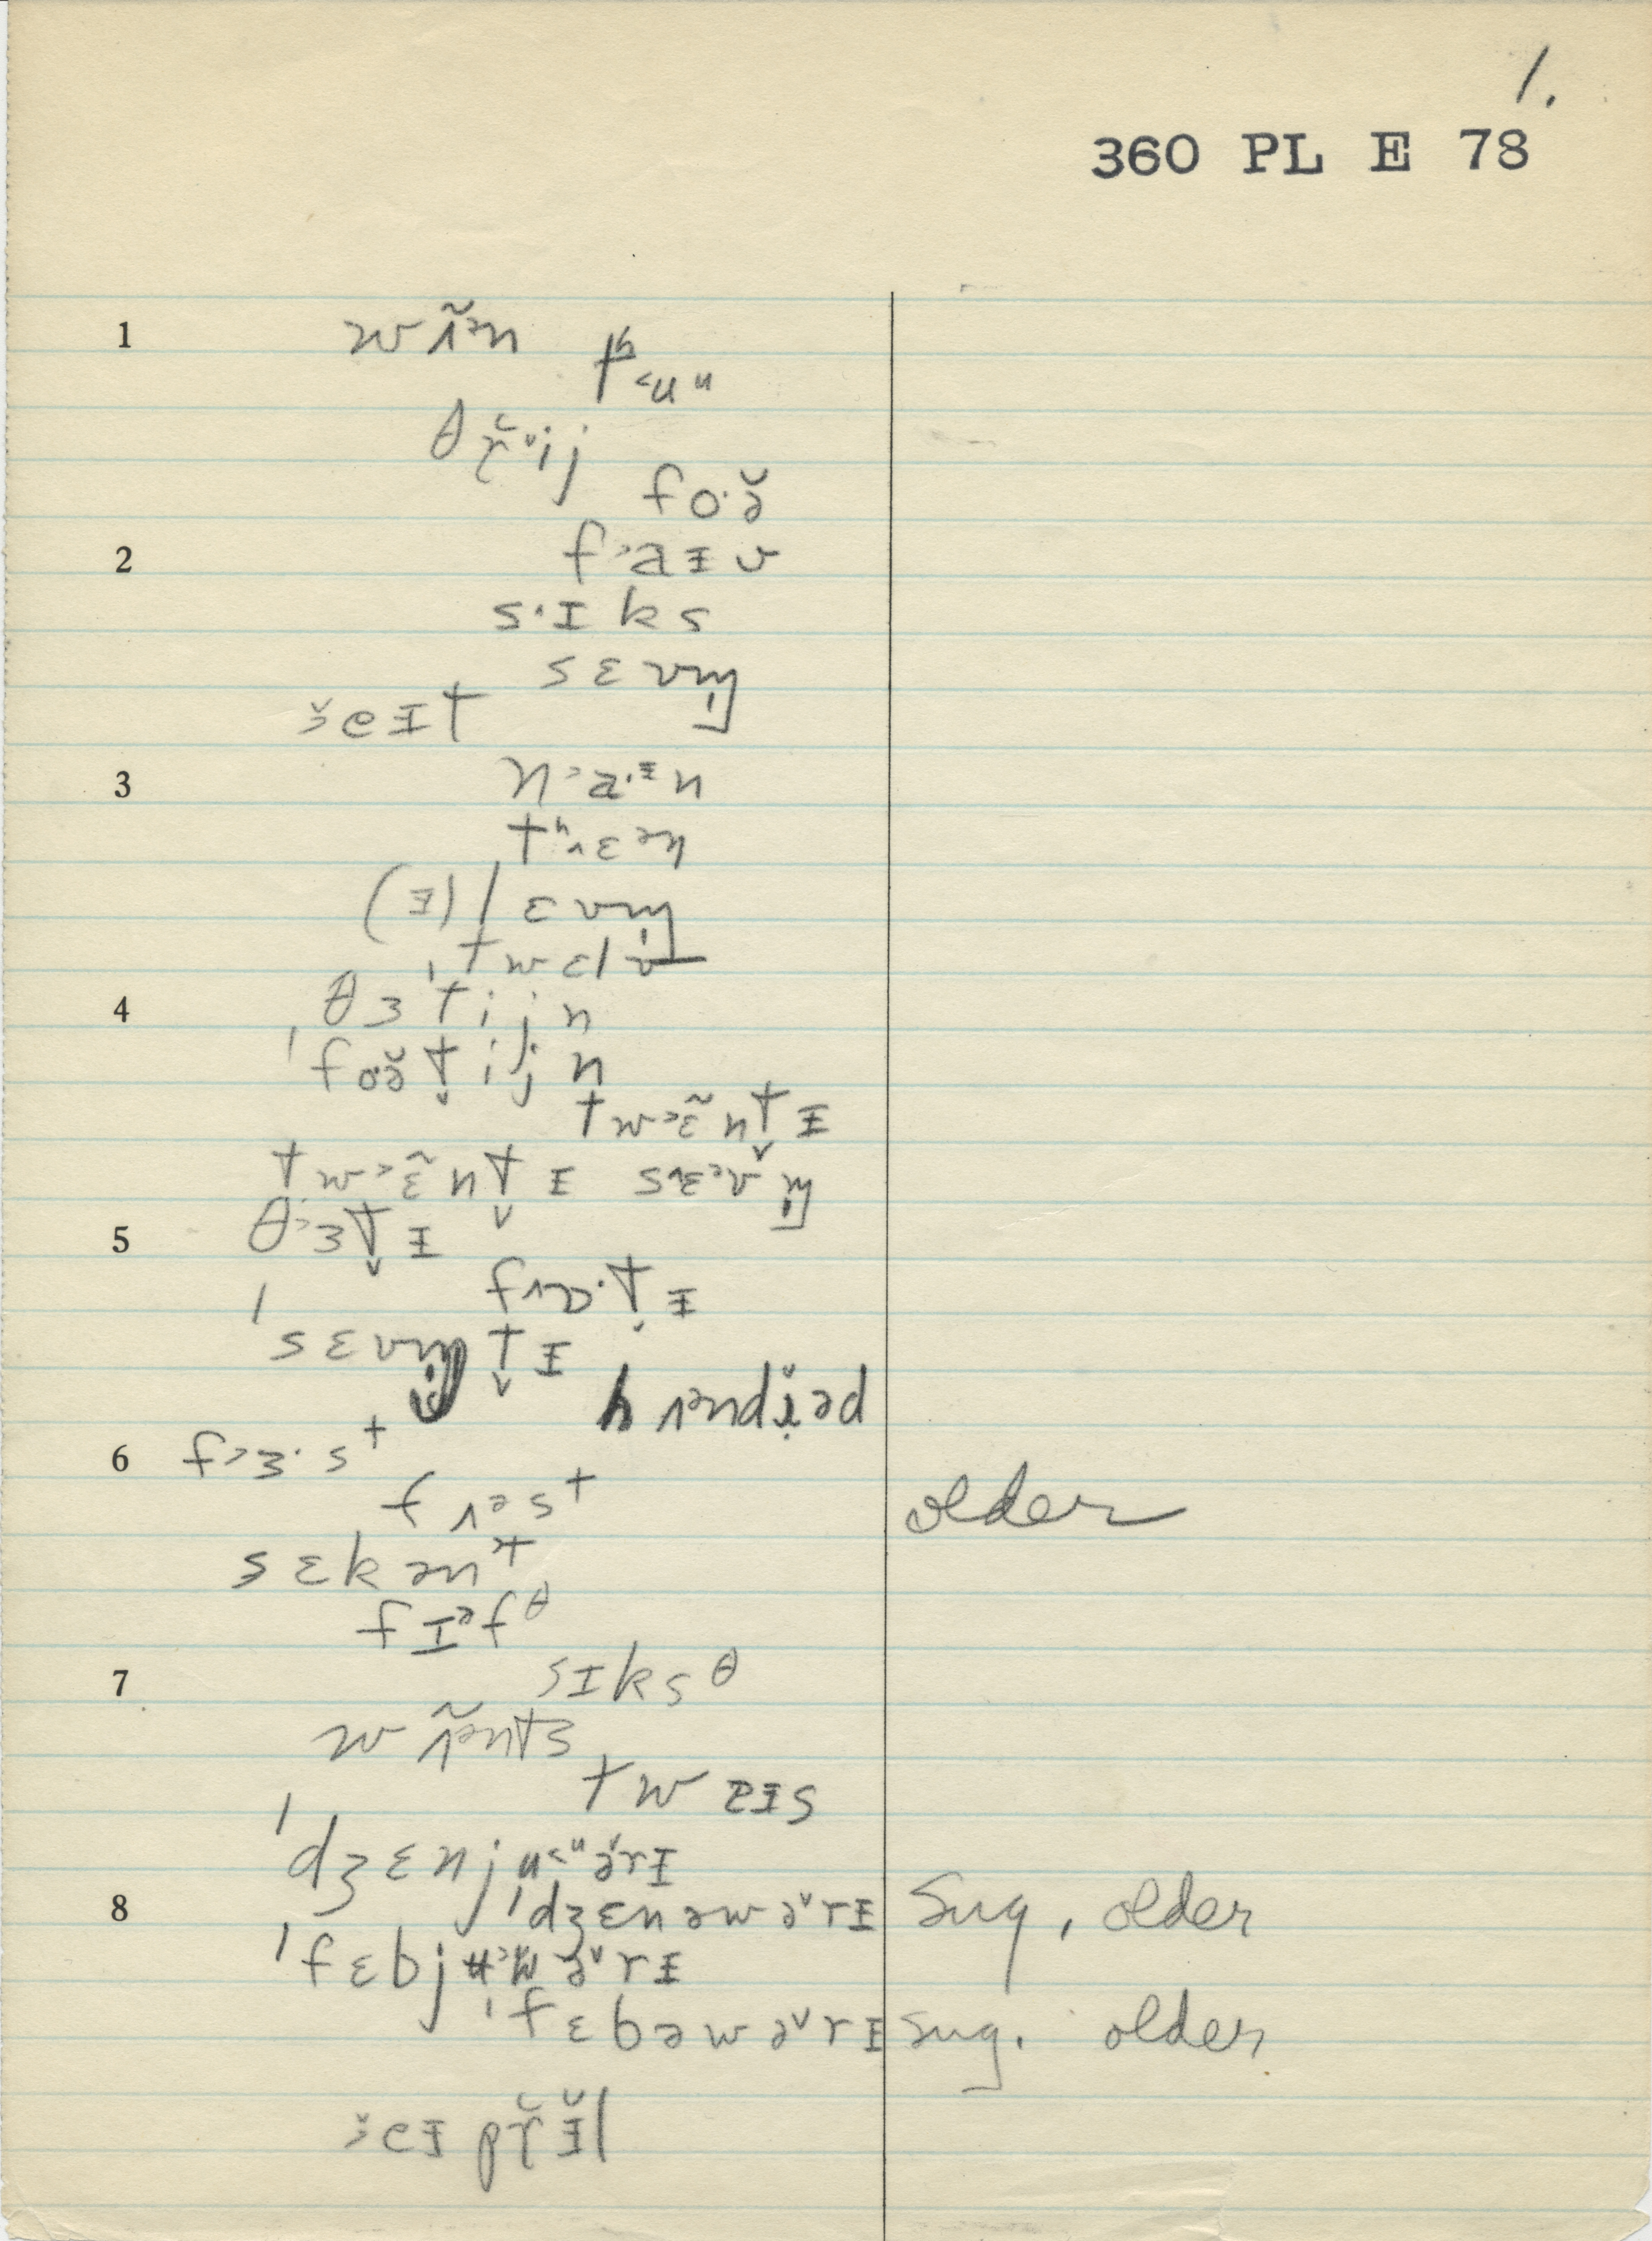 1.
360 PL E 78
1 w ʌ̃˃ə n
tʰ ˂u ᵘ
θ r̥̆ ˅i j
f o· ə̆
2 f ˃a ɪ v
s · ɪ k s
s ɛ v m̩
ɜ̆ e ɪ t
3 n ˃ a · ᶦ n
tʰ ˄ɛ ə n
(ɪ) l ɛ v m̩
ˈt w ɛ l v
4 θ ɜ ˈt i j n
ˈf o· ə̆ t̬ i j n
t w ˃ɛ̃ n t̬ ɪ
t w ˃ɛ̃ n t̬ ɪ s ˄ɛ ə v m̩
5 θ ˃ɜ t̬ ɪ
f ˄ɒ · t̬ ɪ
ˈs ɛ v m̩ t̬ ɪ
h ʌ ə n d ɪ̆ ə d
6 f ˃ɜ · s t
f ʌ ə s t older
s ɛ k ə n t
f ɪ ə f θ
7 s ɪ k s θ
w ʌ̃ ə n t s
t w ɪ s
ˈd ʒ ɛ n j u ˂ᵘ ə̆ r ɪ
8 ˈd ʒ ɛ n ə w ə̆ r ɪ Sug, older
ˈf ɛ b j ʉ w ə̆ r ɪ
ˈf ɛ b ə w ə̆ r ɪ sug. older
ɜ̆ e ɪ p r̥̆ ɪ̆ l